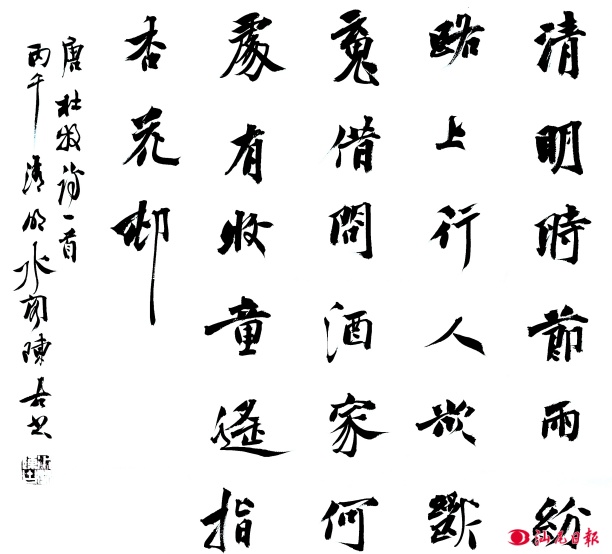 清明時節雨紛
路上行人欲斷
魂借問酒家何
處有牧童遙指
杏花邨
唐杜牧詩一首
丙午清明水陳書
汕尾日報